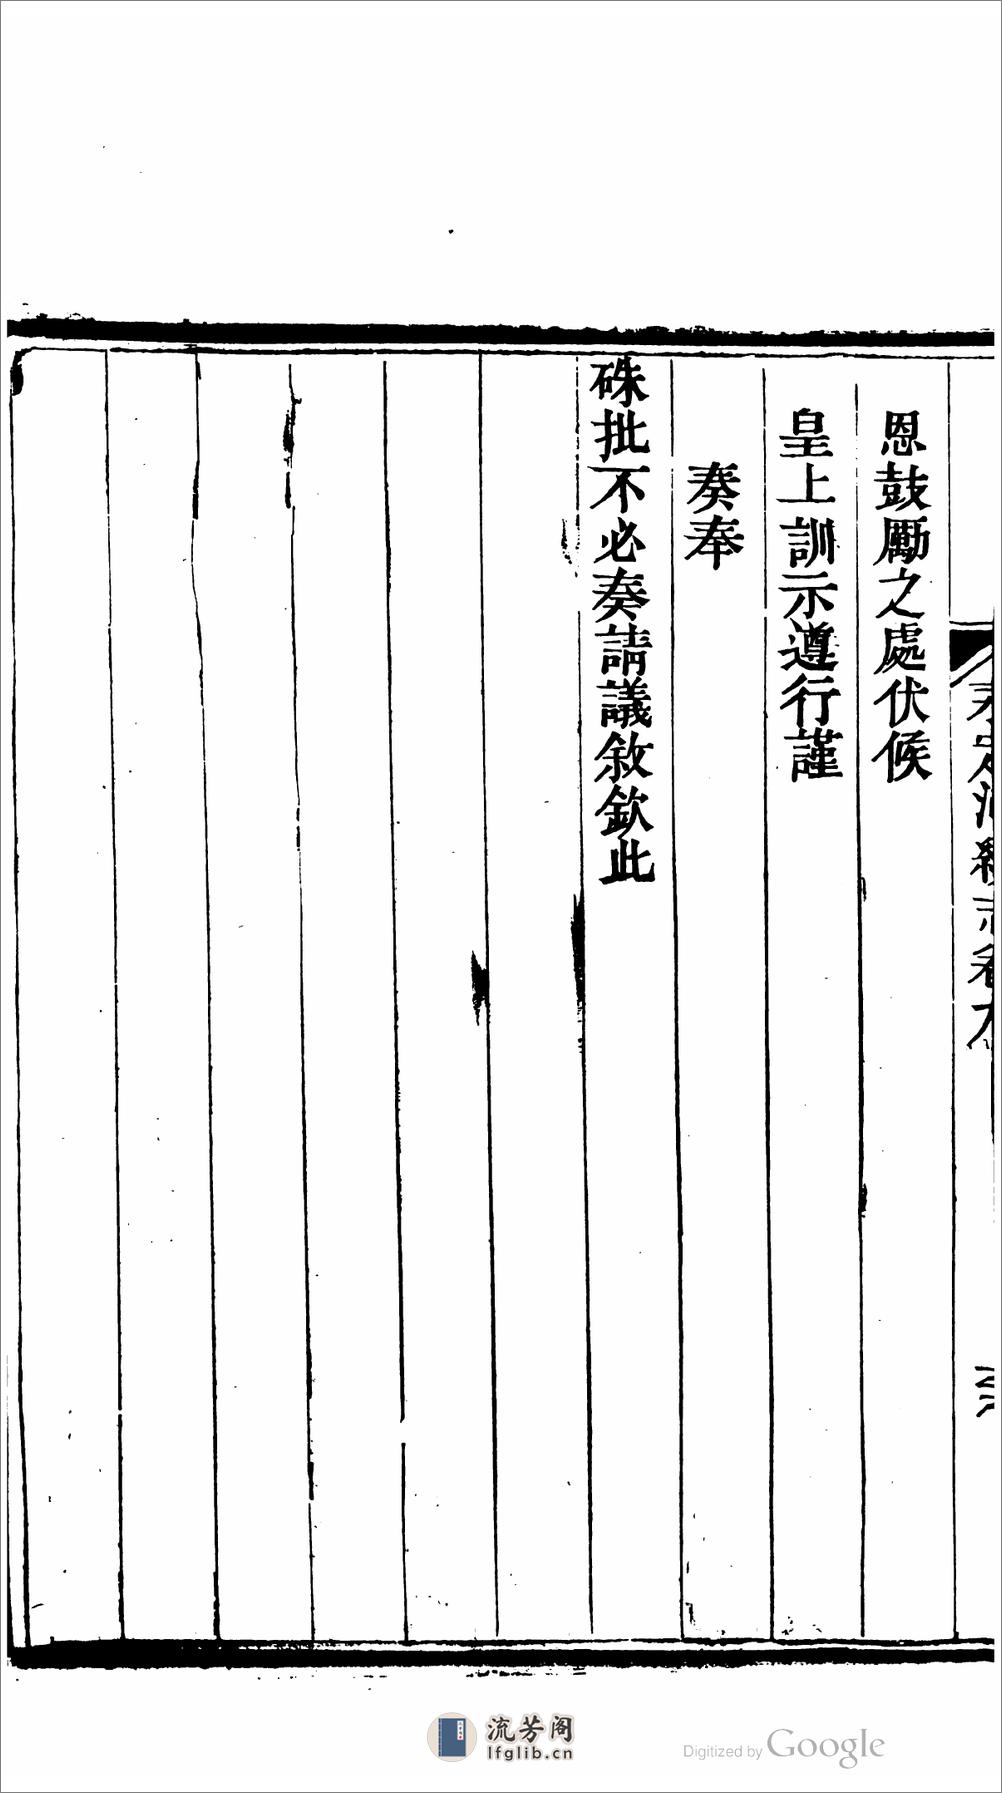 恩鼓勵之處伏候
皇上訓示遵行謹
奏奉
硃批不必奏請議敘欽此
永定河續志卷
流芳阁
lfglib.cn
Digitized by Google